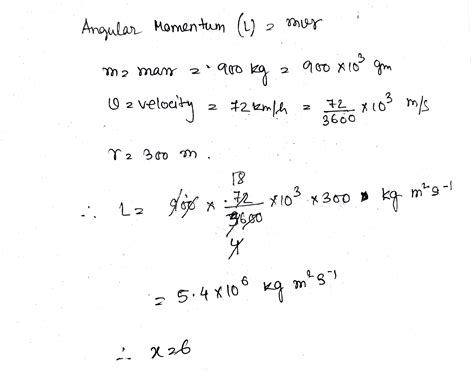 Angular Momentum (L) = mvr
m = mass = 900 kg = 900 × 10³ gm
v = velocity = 72 km/h = 72/3600 × 10³ m/s
r = 300 m.
∴ L = 900 × 72/3600 × 10³ × 300 kg m² s⁻¹
18
4
= 5.4 × 10⁶ kg m² s⁻¹
∴ x = 6